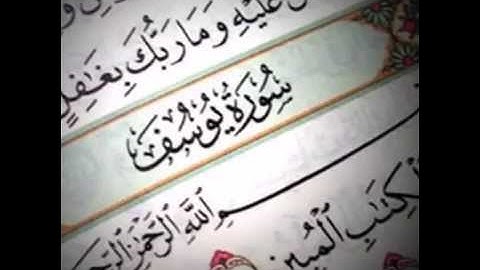 عَلَيْهِ وَمَا رَبُّكَ بِغَٰفِلٍ
سُورَةُ يُوسُفَ
بِسْمِ اللَّهِ الرَّحْمَٰنِ الرَّحِيمِ
الْكِتَٰبِ الْمُبِينِ